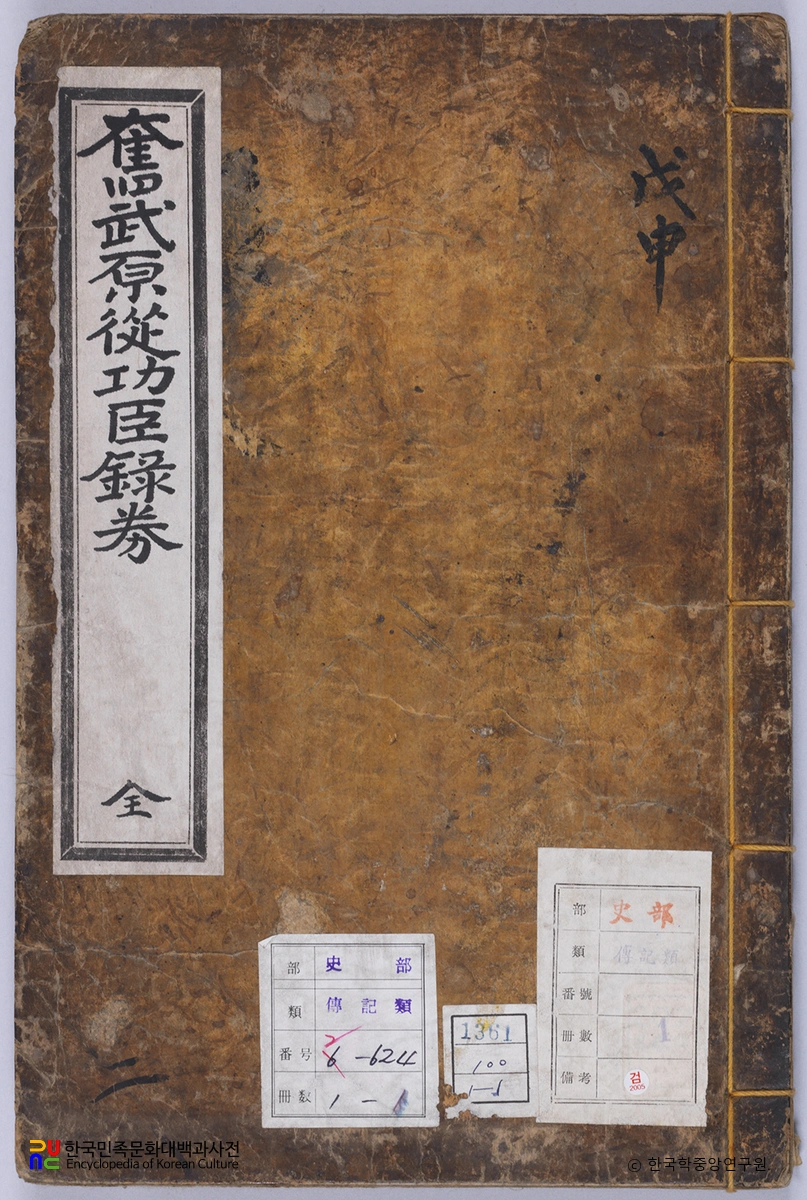 奮武原從功臣錄券
全
戊申
二
部 史部
類 傳記類
番号 2 6-624
冊数 1-1
1361
100
1-1
部 史部
類 傳記類
番號
冊數 1
備考 검 2005
한국민족문화대백과사전
Encyclopedia of Korean Culture
© 한국학중앙연구원